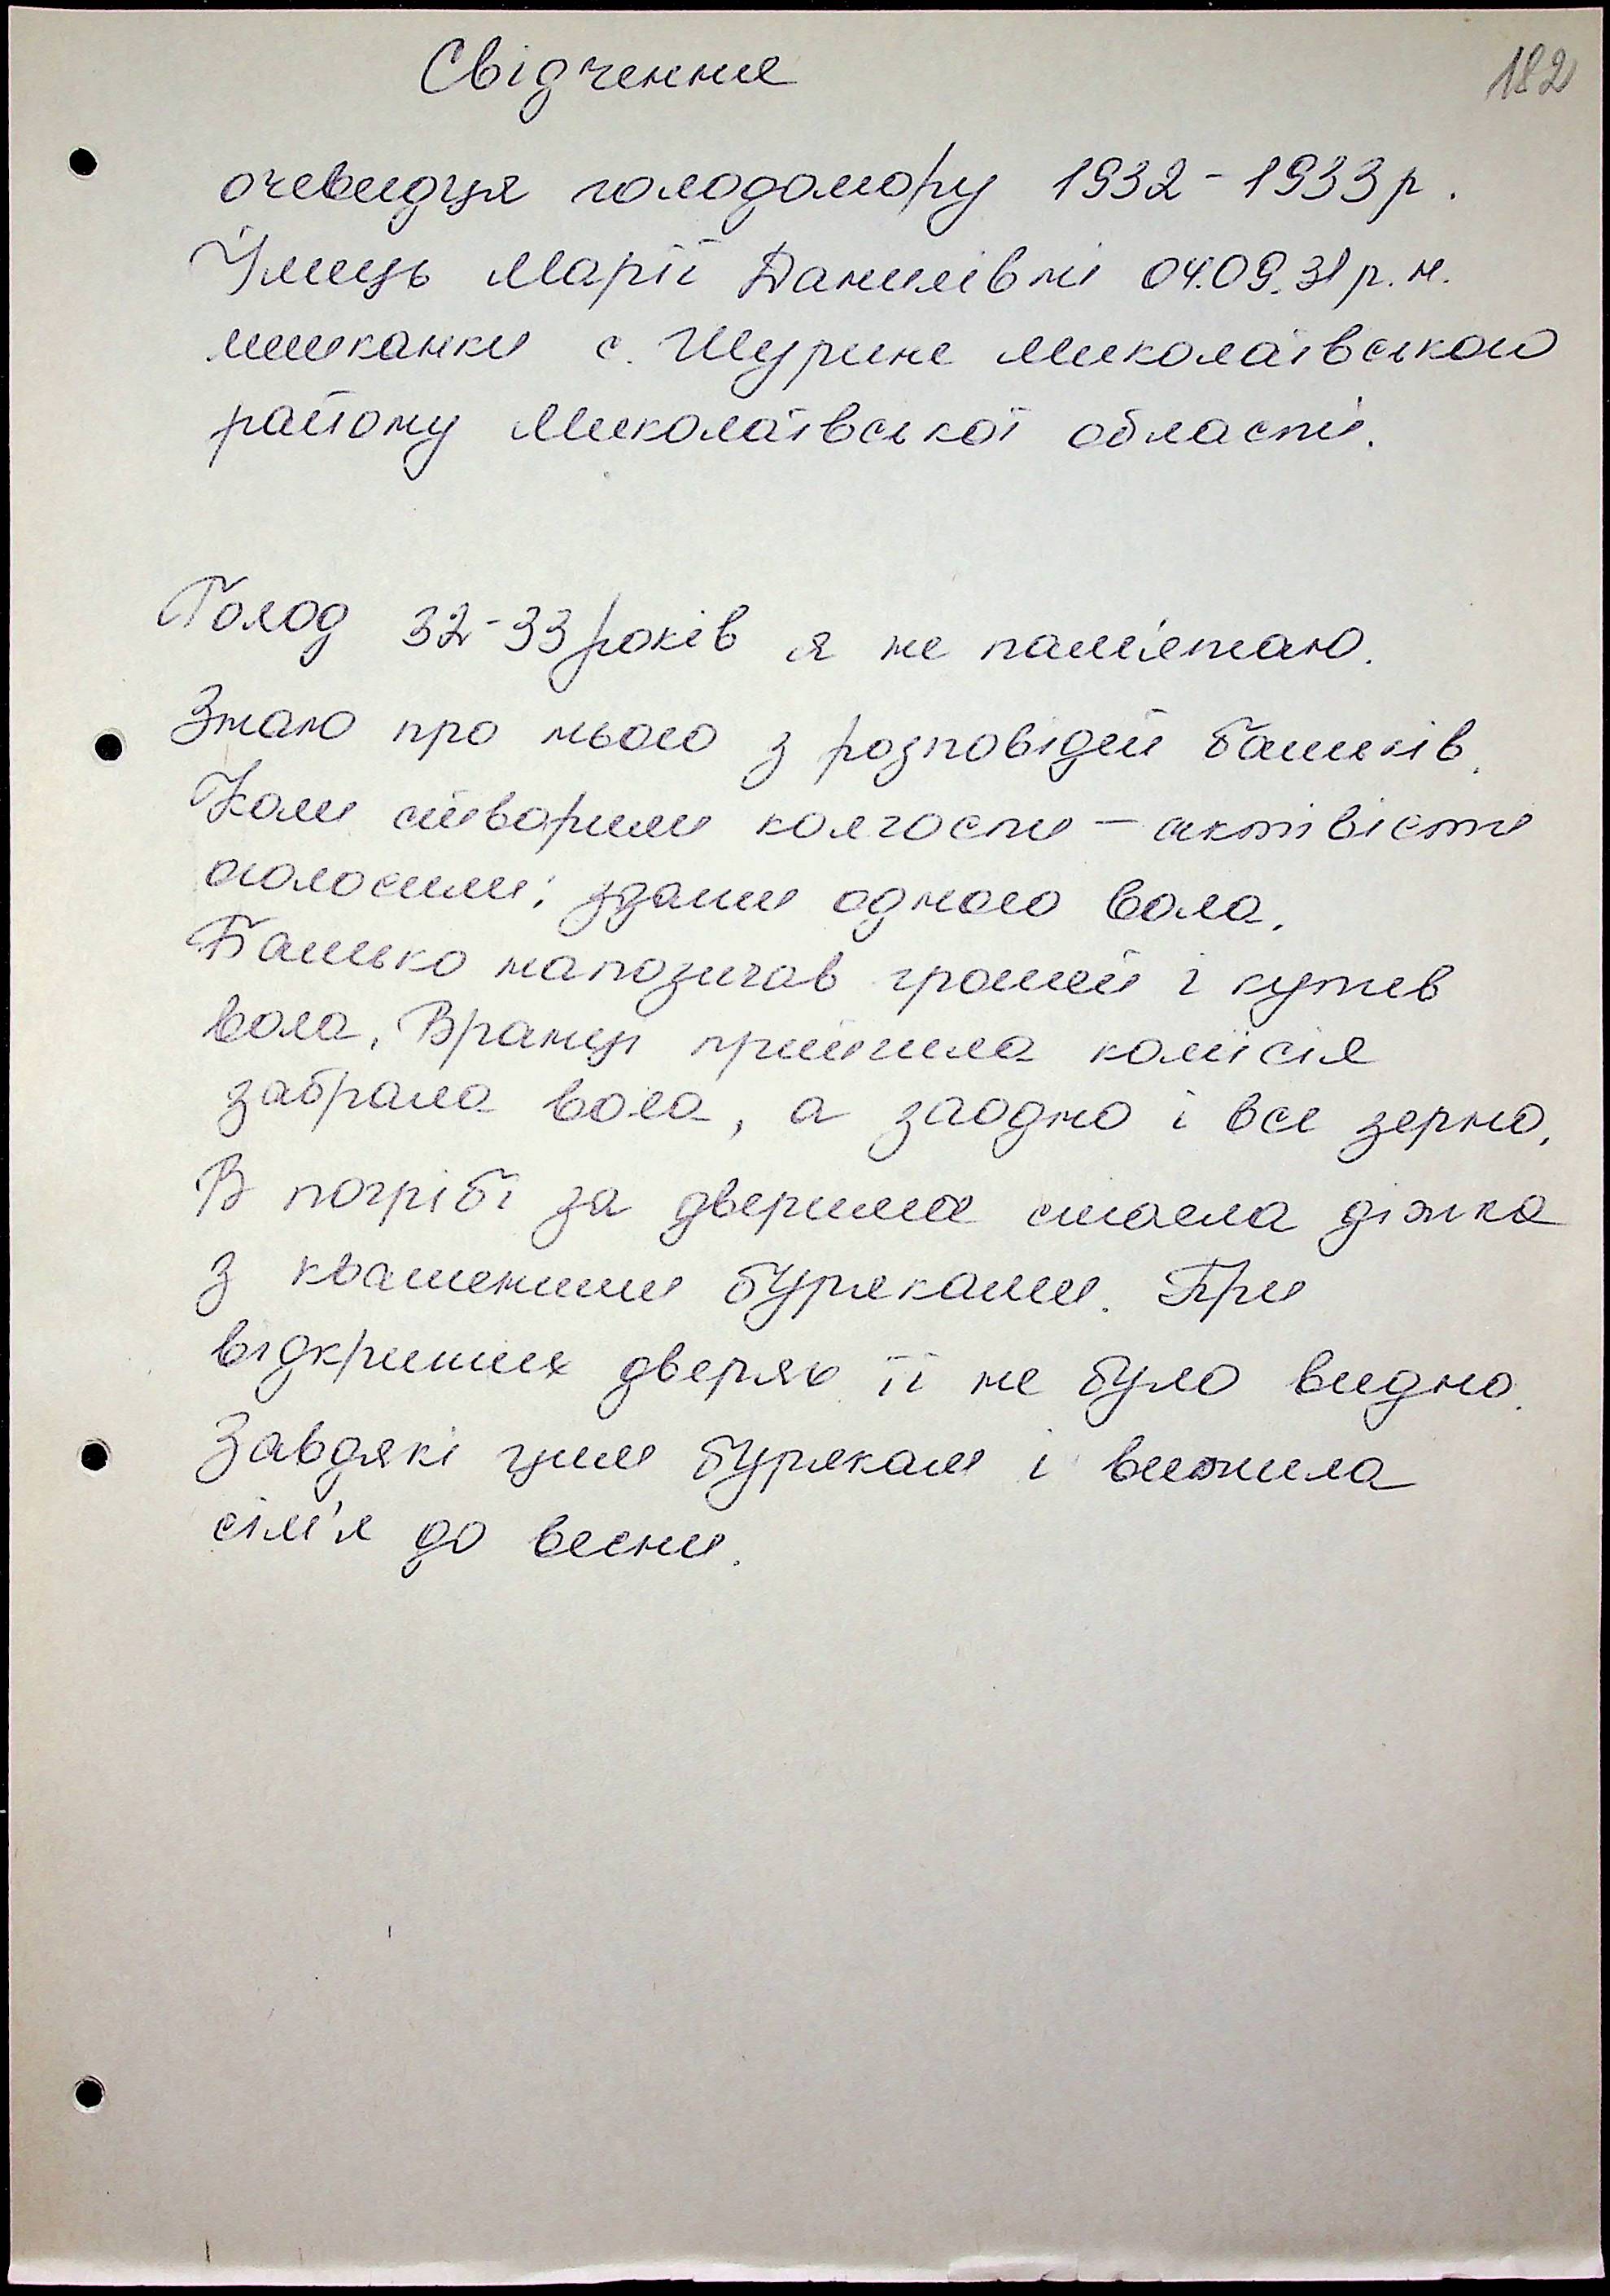 182
Свідчення
очевидця голодомору 1932-1933р.
Марії Данилівні 04.09.31р.н.
мешканки с. Шурине Миколаївського
району Миколаївської області.
Голод 32-33 років я не пам'ятаю.
Знаю про нього з розповідей батьків.
Коли створили колгоспи - актівісти
оголосили: здати одного вола.
Батько напозичав грошей і купив
вола. Вранці прийшла комісія
забрала вола, а заодно і все зерно.
В погрібі за дверима стояла діжка
з квашеними буряками. При
відкритих дверях її не було видно.
Завдякі цим бурякам і вижила
сім'я до весни.